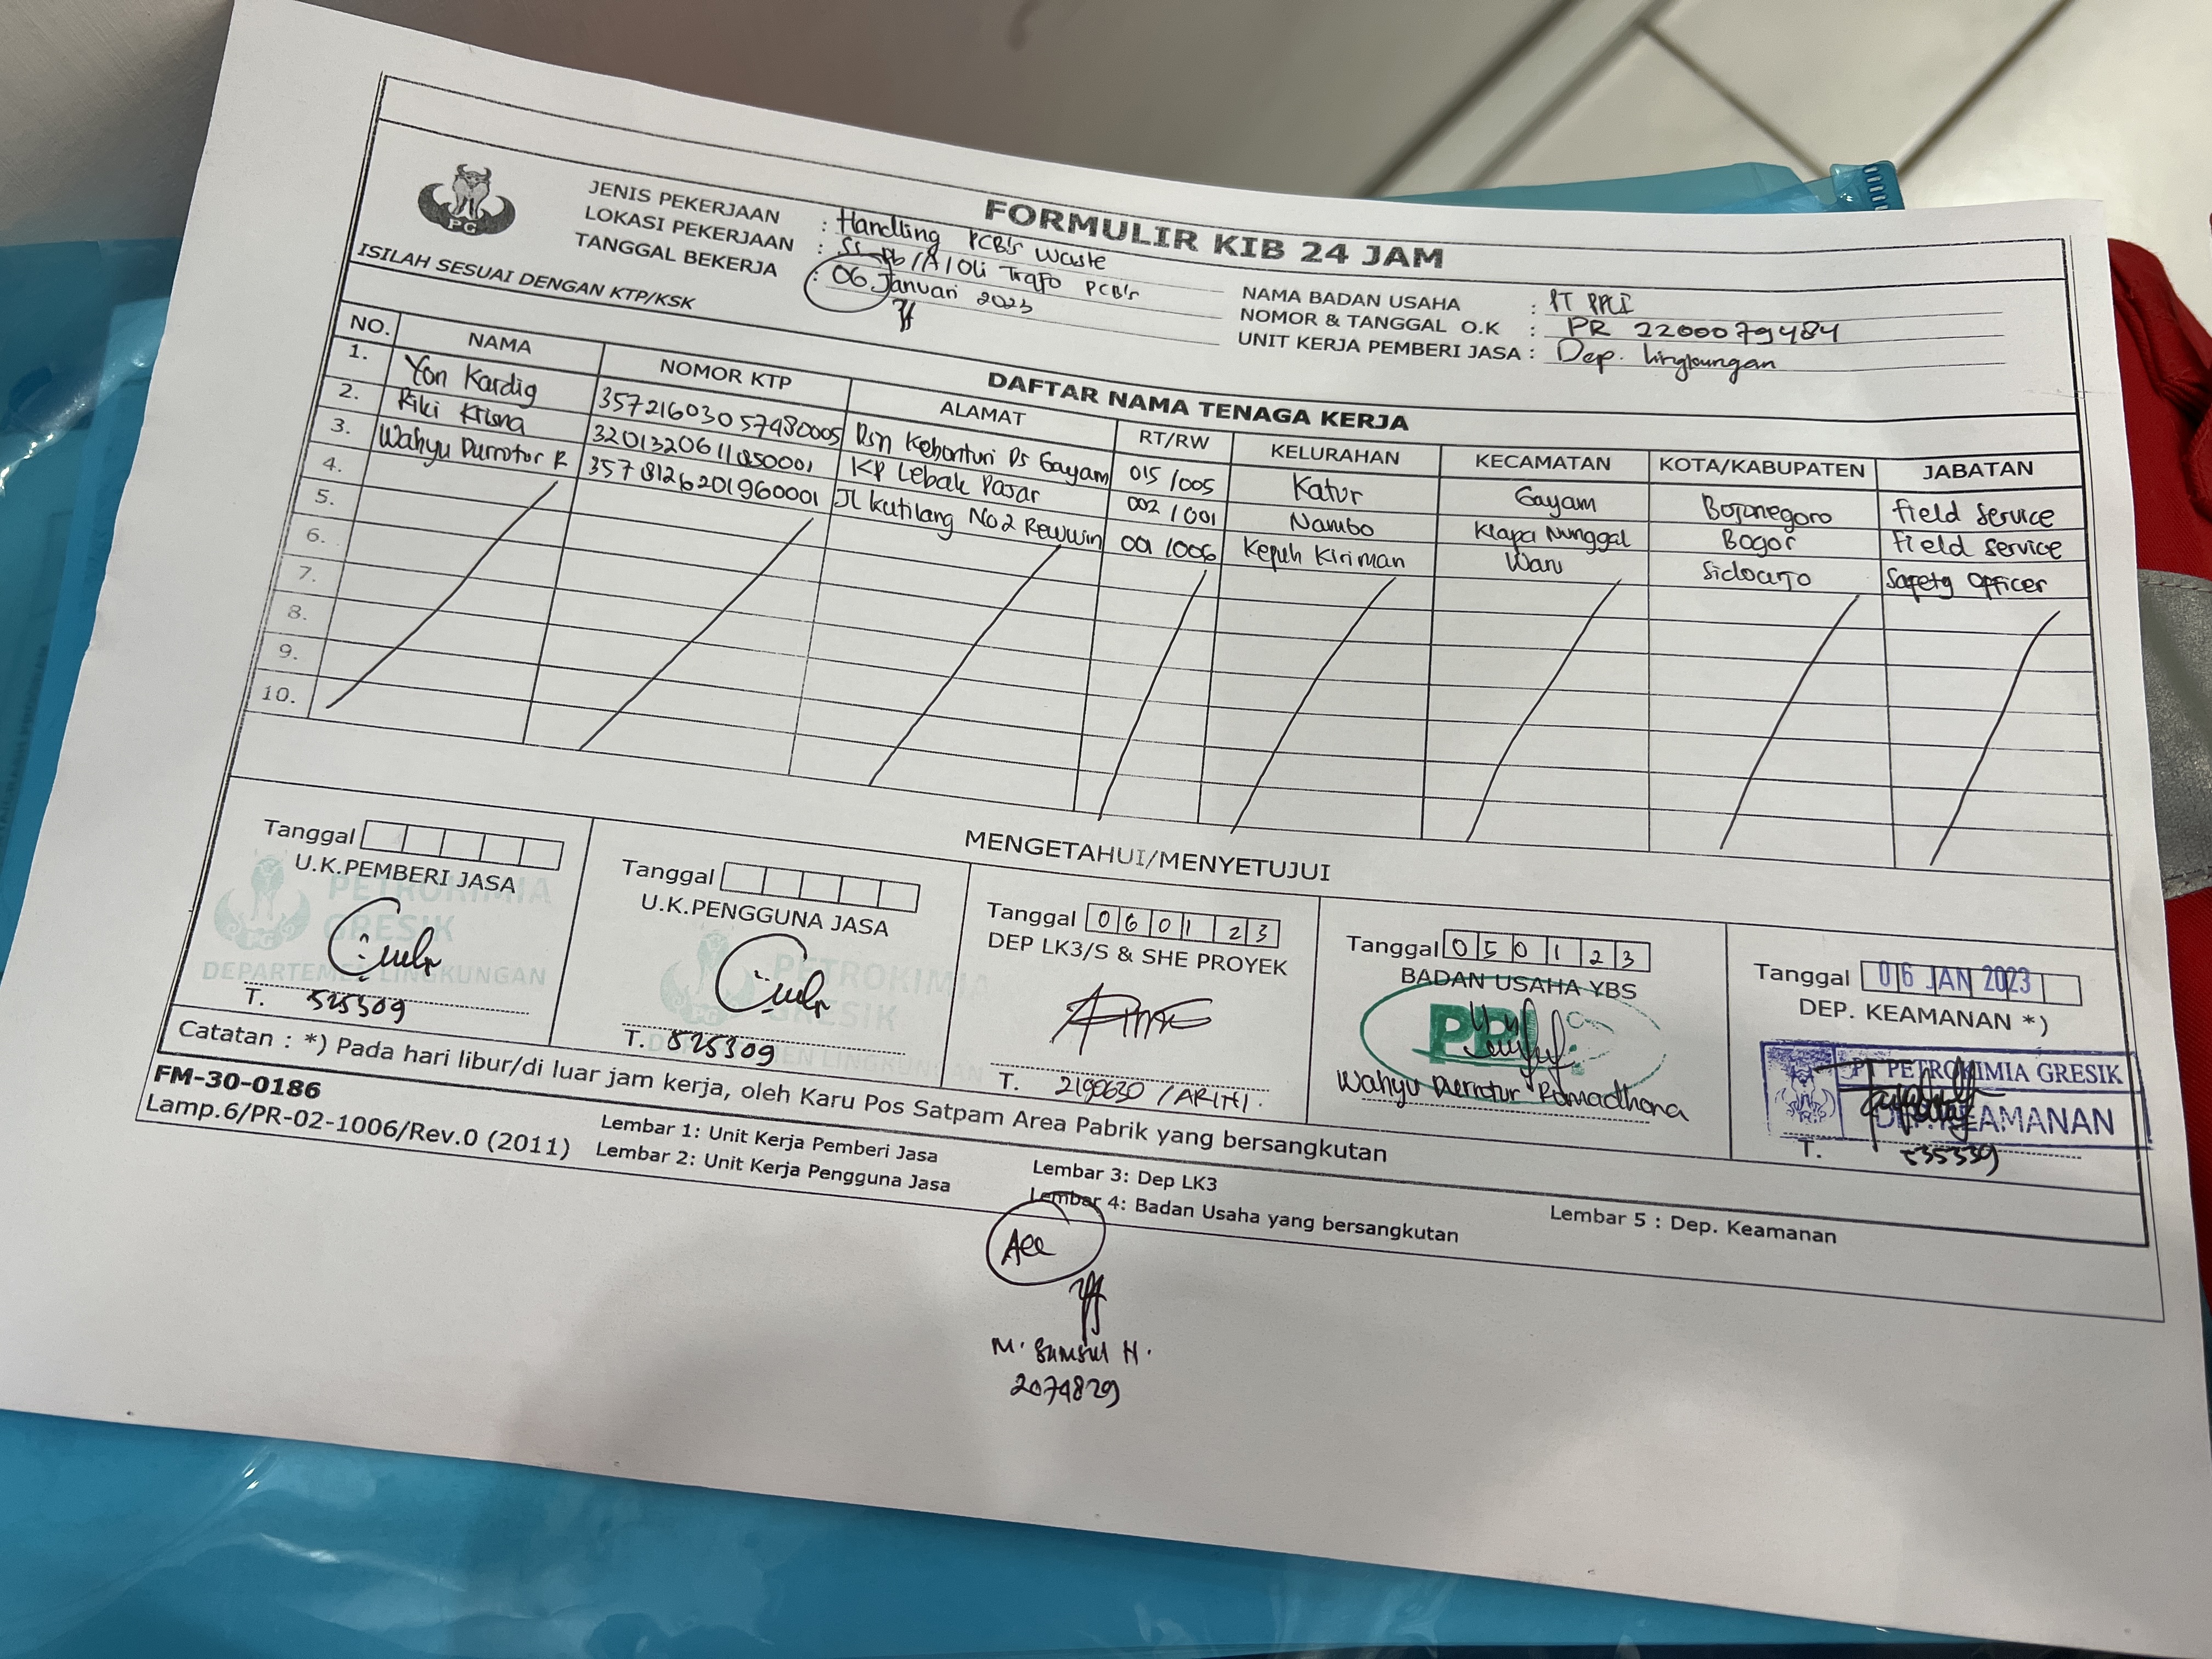 FORMULIR KIB 24 JAM
PG
JENIS PEKERJAAN : Handling PCB's Waste
LOKASI PEKERJAAN : /A/Oli Trafo PCB's
TANGGAL BEKERJA : 06 Januari 2023
NAMA BADAN USAHA : PT PPLI
NOMOR & TANGGAL O.K : PR 2200079484
UNIT KERJA PEMBERI JASA : Dep. Lingkungan
ISILAH SESUAI DENGAN KTP/KSK
DAFTAR NAMA TENAGA KERJA
NO. NAMA NOMOR KTP ALAMAT RT/RW KELURAHAN KECAMATAN KOTA/KABUPATEN JABATAN
1. Yon Kardig Dsn Kebonturi Ds Gayam 015/005 Katur Gayam Bojonegoro Field Service
2. Riki Krisna KP Lebak Pasar 002/001 Nambo Klapa Nunggal Bogor Field Service
3. Wahyu Durrotur R Jl kutilang No2 Rewwin 001/006 Kepuh Kiriman Waru Sidoarjo Safety Officer
4.
5.
6.
7.
8.
9.
10.
MENGETAHUI/MENYETUJUI
Tanggal
U.K.PEMBERI JASA
PETROKIMIA
GRESIK
DEPARTEMEN LINGKUNGAN
T. 525309
Tanggal
U.K.PENGGUNA JASA
PETROKIMIA
GRESIK
T. 525309
Tanggal 060123
DEP LK3/S & SHE PROYEK
T. 2190630 / ARITH.
Tanggal 050123
BADAN USAHA YBS
PPLI
Wahyu Romadhona
Tanggal 06 JAN 2023
DEP. KEAMANAN *)
PT PETROKIMIA GRESIK
KEAMANAN
T.
Catatan : *) Pada hari libur/di luar jam kerja, oleh Karu Pos Satpam Area Pabrik yang bersangkutan
FM-30-0186
Lamp.6/PR-02-1006/Rev.0 (2011)
Lembar 1: Unit Kerja Pemberi Jasa
Lembar 2: Unit Kerja Pengguna Jasa
Lembar 3: Dep LK3
Lembar 4: Badan Usaha yang bersangkutan
Lembar 5 : Dep. Keamanan
Acc
2074829